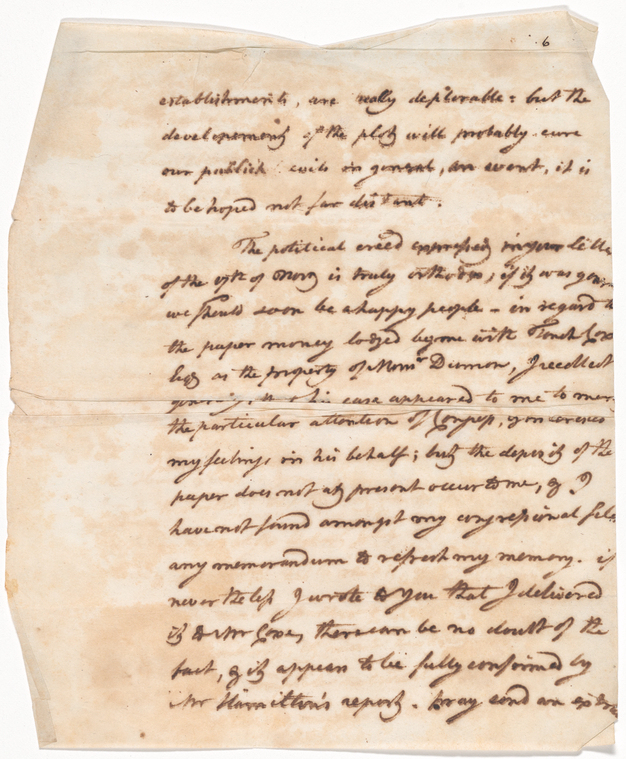 6
establishments, are really deplorable: but the
developement of the plot will probably cure
our publick evils in general, an event, it is
to be hoped not far distant.
The political creed expressed in your letter
of the of Novr is truly orthodox; if it was
we should soon be a happy people - in regard to
the paper money lodged by me with Tench Coxe
Esq as the property of Monsr Dumon, I recollect
his case appeared to me to
the particular attention of Congress,
my feelings in his behalf; but the deposit of the
paper does not at present occur to me, & I
have not found amongst my congressional files
any memorandum to refresh my memory. if
never the less I wrote to you that I delivered
it to Mr Coxe, there can be no doubt of the
fact, & it appears to be fully confirmed by
Mr Hamilton's report. pray send an